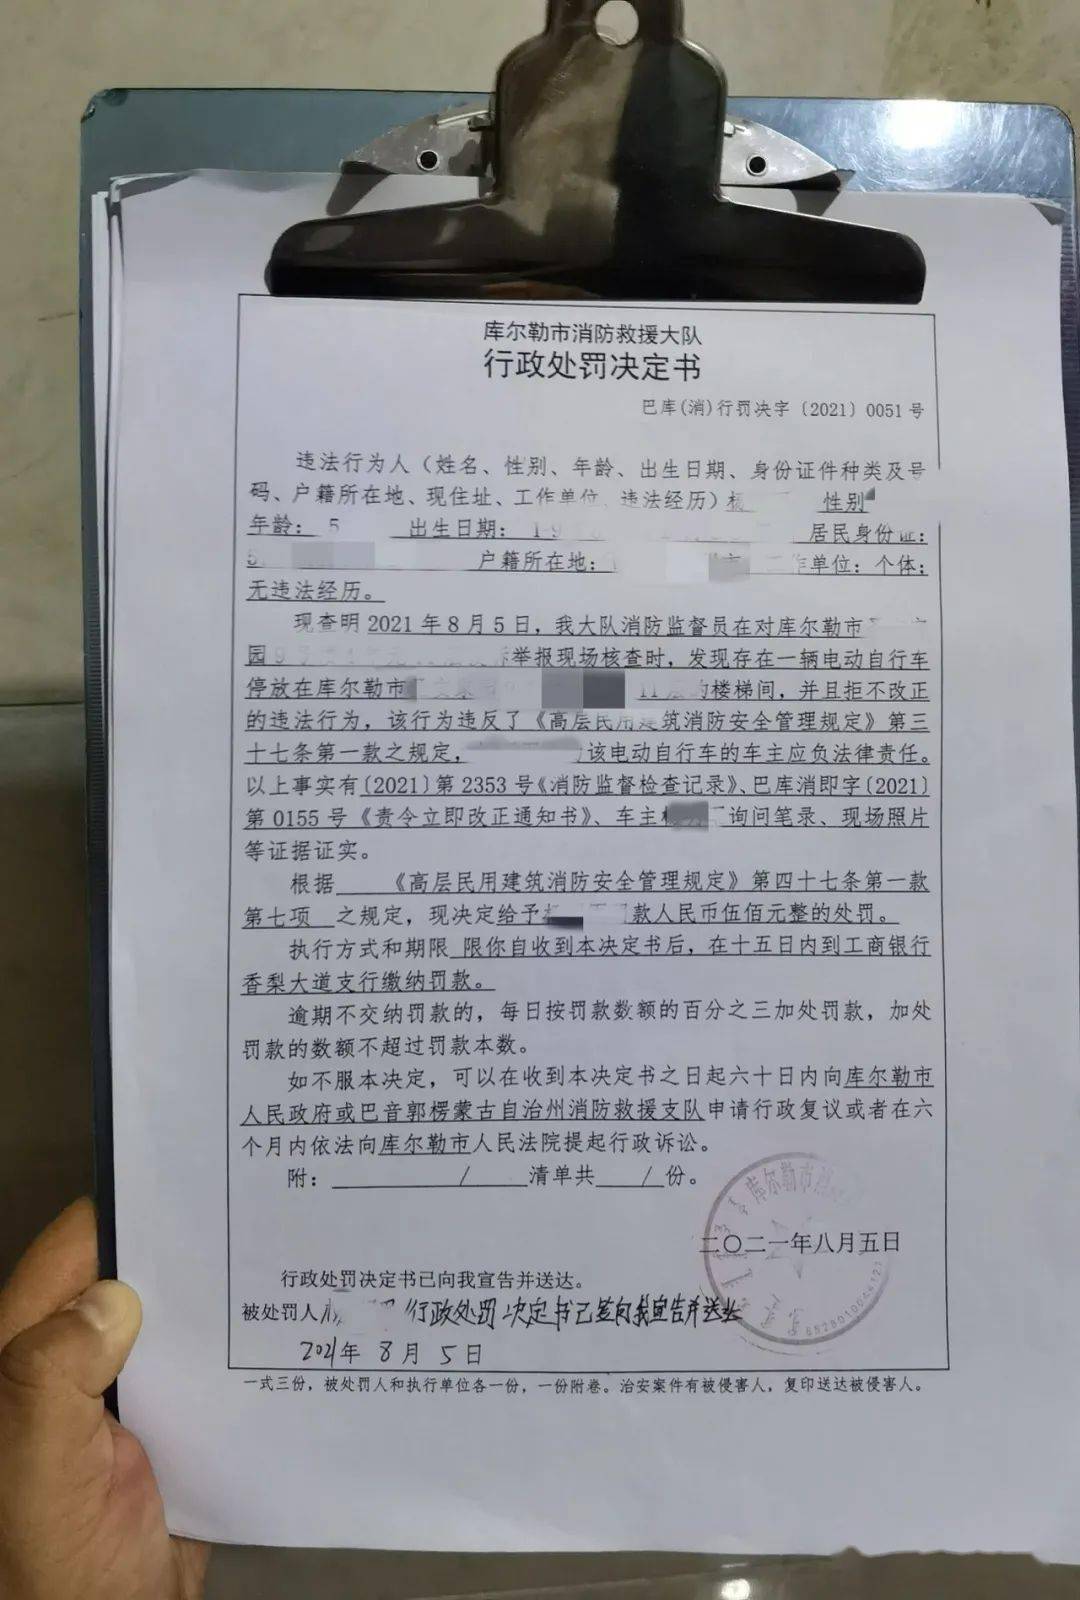 库尔勒市消防救援大队
行政处罚决定书
巴库(消)行罚决字〔2021〕0051号
违法行为人（姓名、性别、年龄、出生日期、身份证件种类及号
码、户籍所在地、现住址、工作单位、违法经历） 性别
年龄：5 出生日期：19 居民身份证：
5 户籍所在地： 作单位：个体；
无违法经历。
现查明2021年8月5日，我大队消防监督员在对库尔勒市
园9 举报现场核查时，发现存在一辆电动自行车
停放在库尔勒市 11层的楼梯间，并且拒不改正
的违法行为，该行为违反了《高层民用建筑消防安全管理规定》第三
十七条第一款之规定， 该电动自行车的车主应负法律责任。
以上事实有〔2021〕第2353号《消防监督检查记录》、巴库消即字〔2021〕
第0155号《责令立即改正通知书》、车主 询问笔录、现场照片
等证据证实。
根据 《高层民用建筑消防安全管理规定》第四十七条第一款
第七项 之规定，现决定给予 款人民币伍佰元整的处罚。
执行方式和期限 限你自收到本决定书后，在十五日内到工商银行
香梨大道支行缴纳罚款。
逾期不交纳罚款的，每日按罚款数额的百分之三加处罚款，加处
罚款的数额不超过罚款本数。
如不服本决定，可以在收到本决定书之日起六十日内向库尔勒市
人民政府或巴音郭楞蒙古自治州消防救援支队申请行政复议或者在六
个月内依法向库尔勒市人民法院提起行政诉讼。
附： / 清单共 / 份。
库尔勒市消
二〇二一年八月五日
行政处罚决定书已向我宣告并送达。
被处罚人 行政处罚决定书已 向我宣告并送达
2021年 8月 5日
一式三份，被处罚人和执行单位各一份，一份附卷。治安案件有被侵害人，复印送达被侵害人。